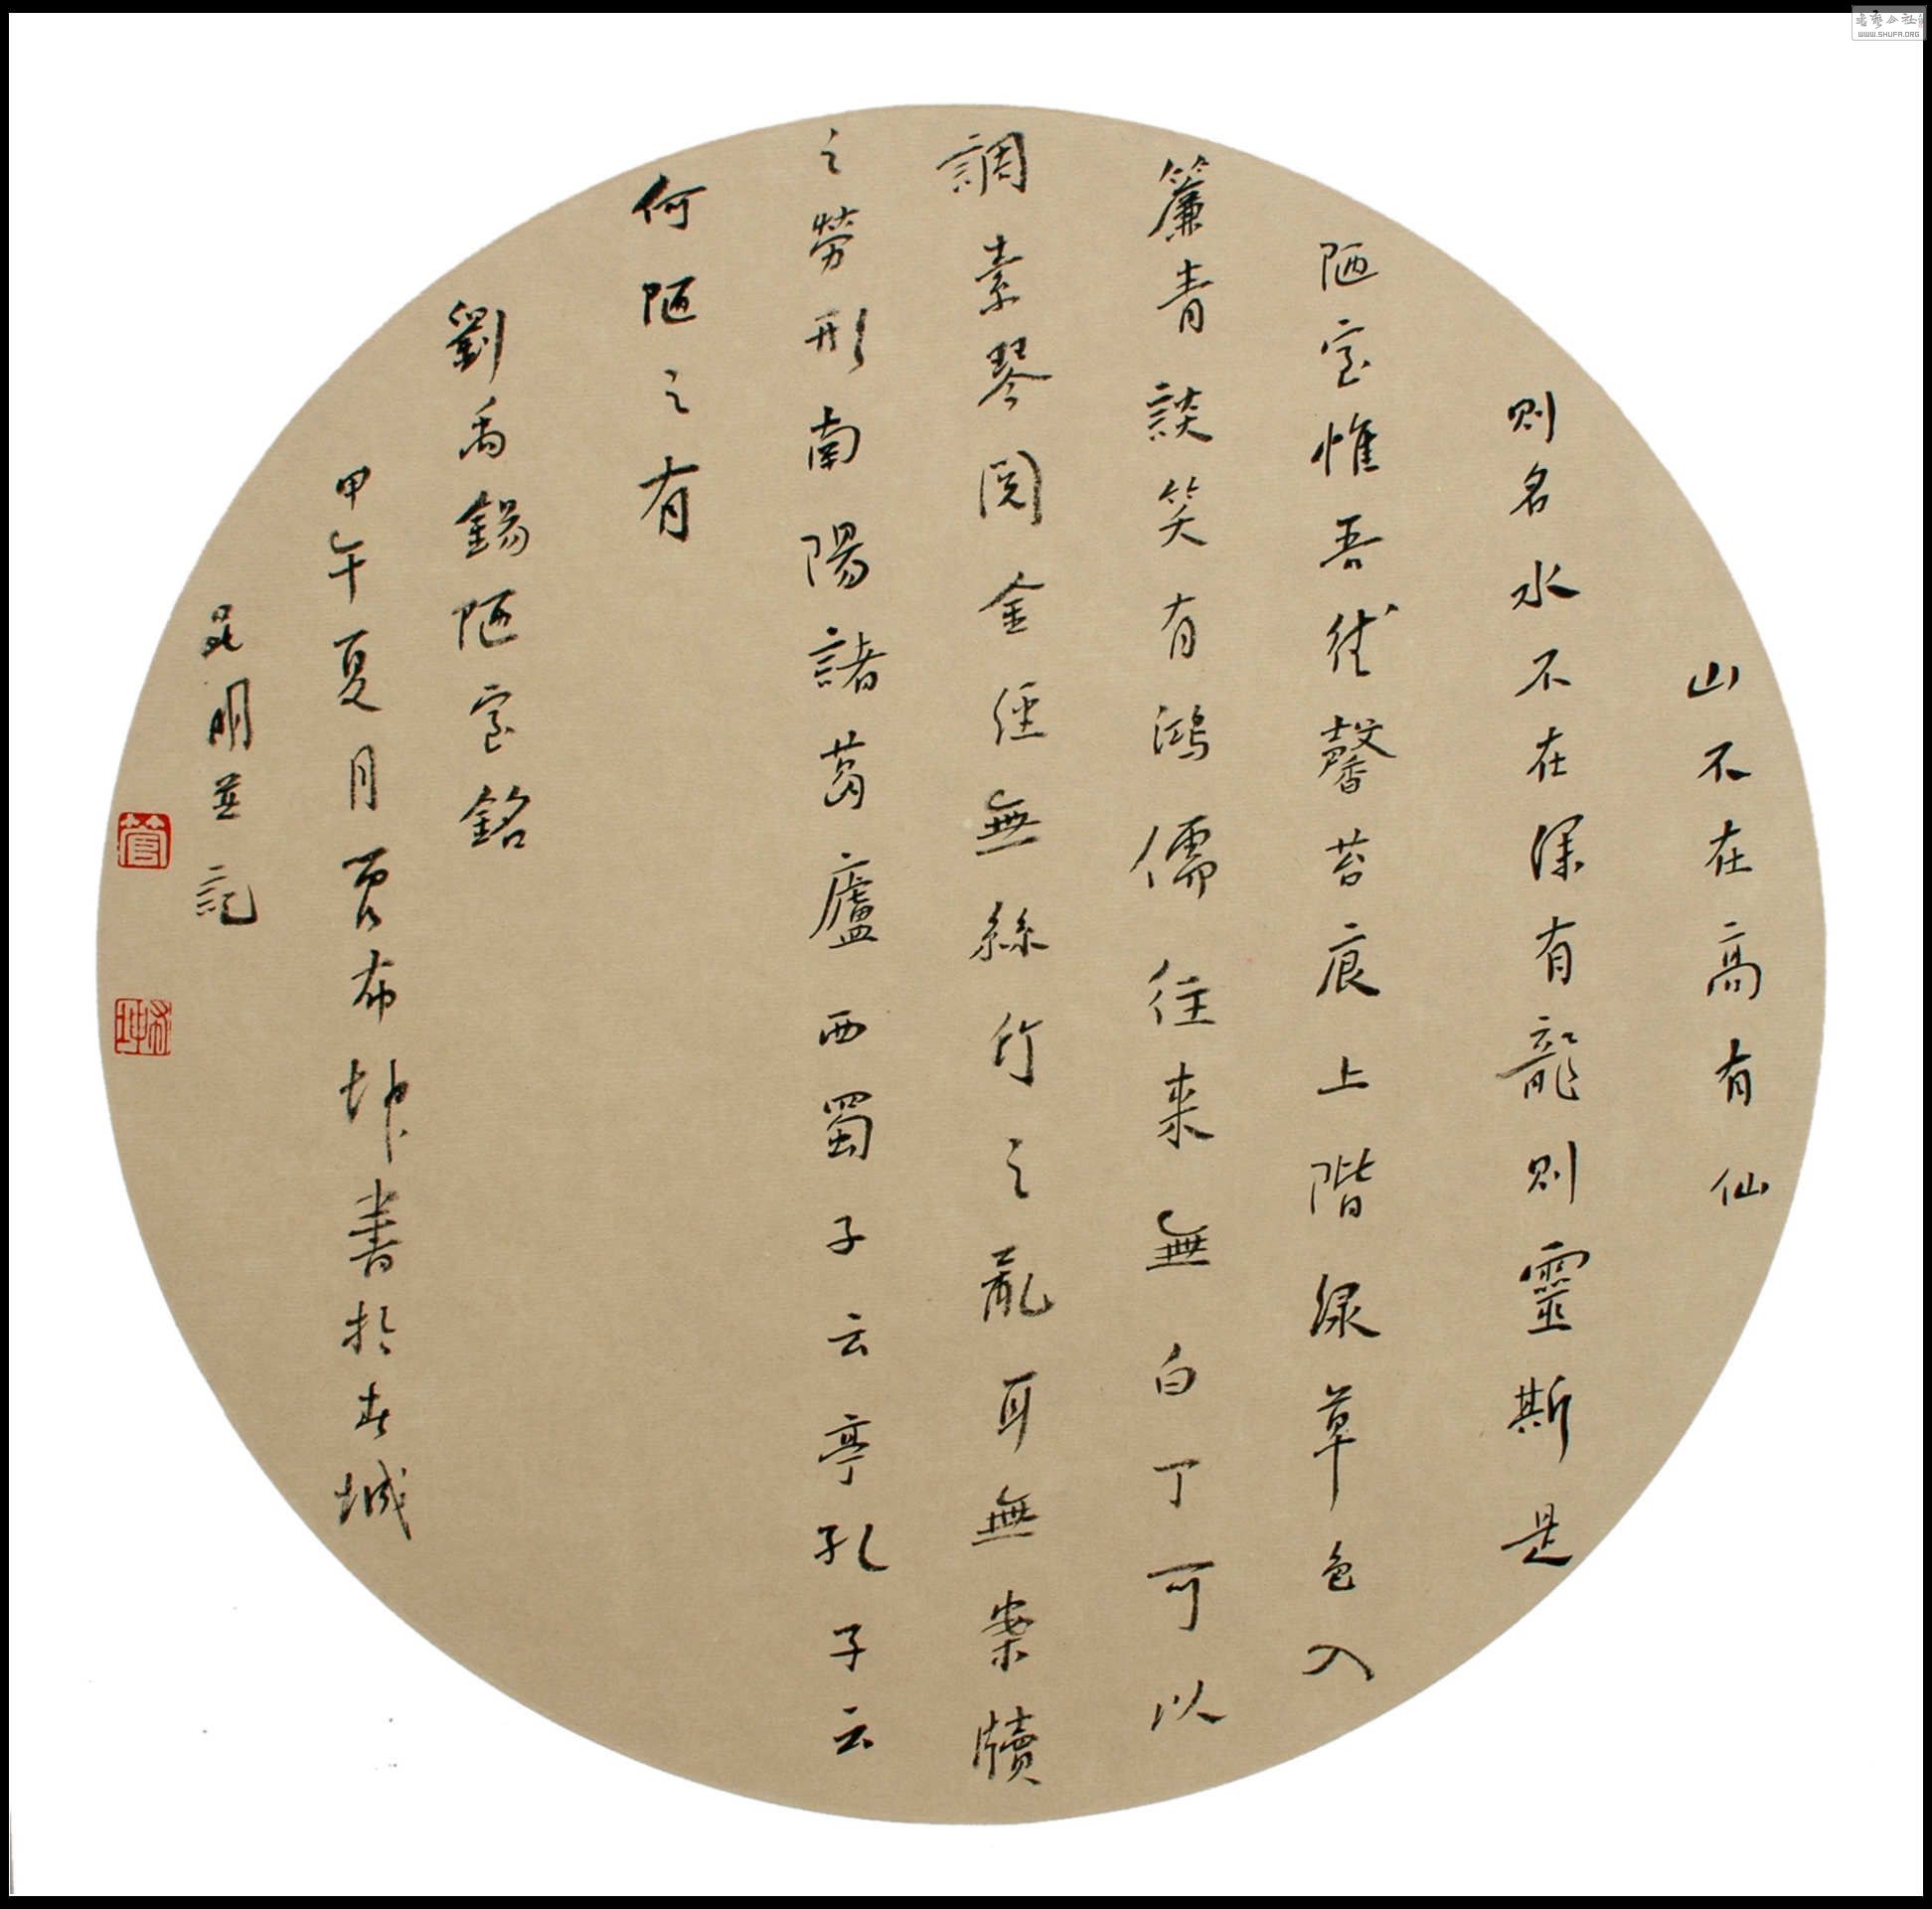 山不在高有仙
则名水不在深有龍则靈斯是
陋室惟吾德馨苔痕上階緑草色入
簾青談笑有鴻儒往来無白丁可以
調素琴閲金經無絲竹之亂耳無案牘
之勞形南陽諸葛廬西蜀子云亭孔子云
何陋之有
劉禹錫陋室銘
甲午夏月管布坤書於春城
昆明並記
管
布坤
书艺公社
WWW.SHUFA.ORG